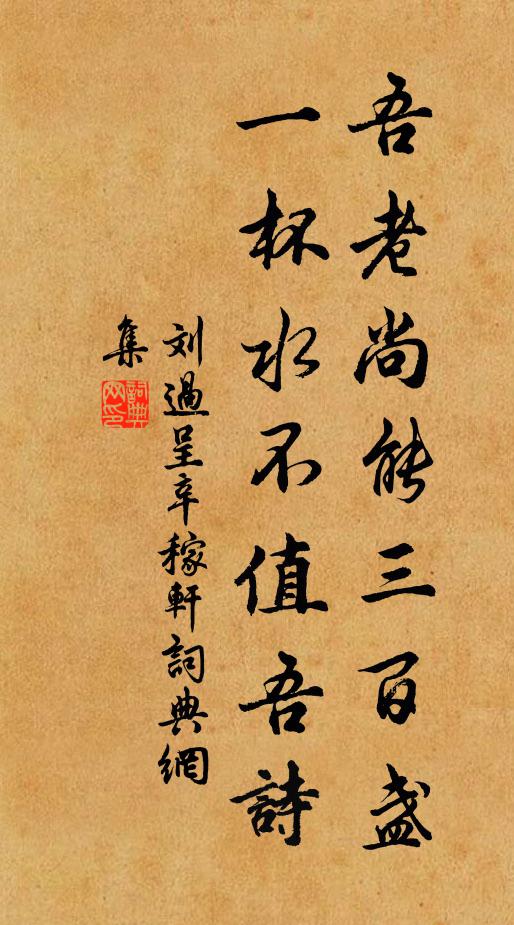 吾老尚能三百盏
一杯水不值吾詩
刘過呈辛稼軒詞典網
集
詞典網印